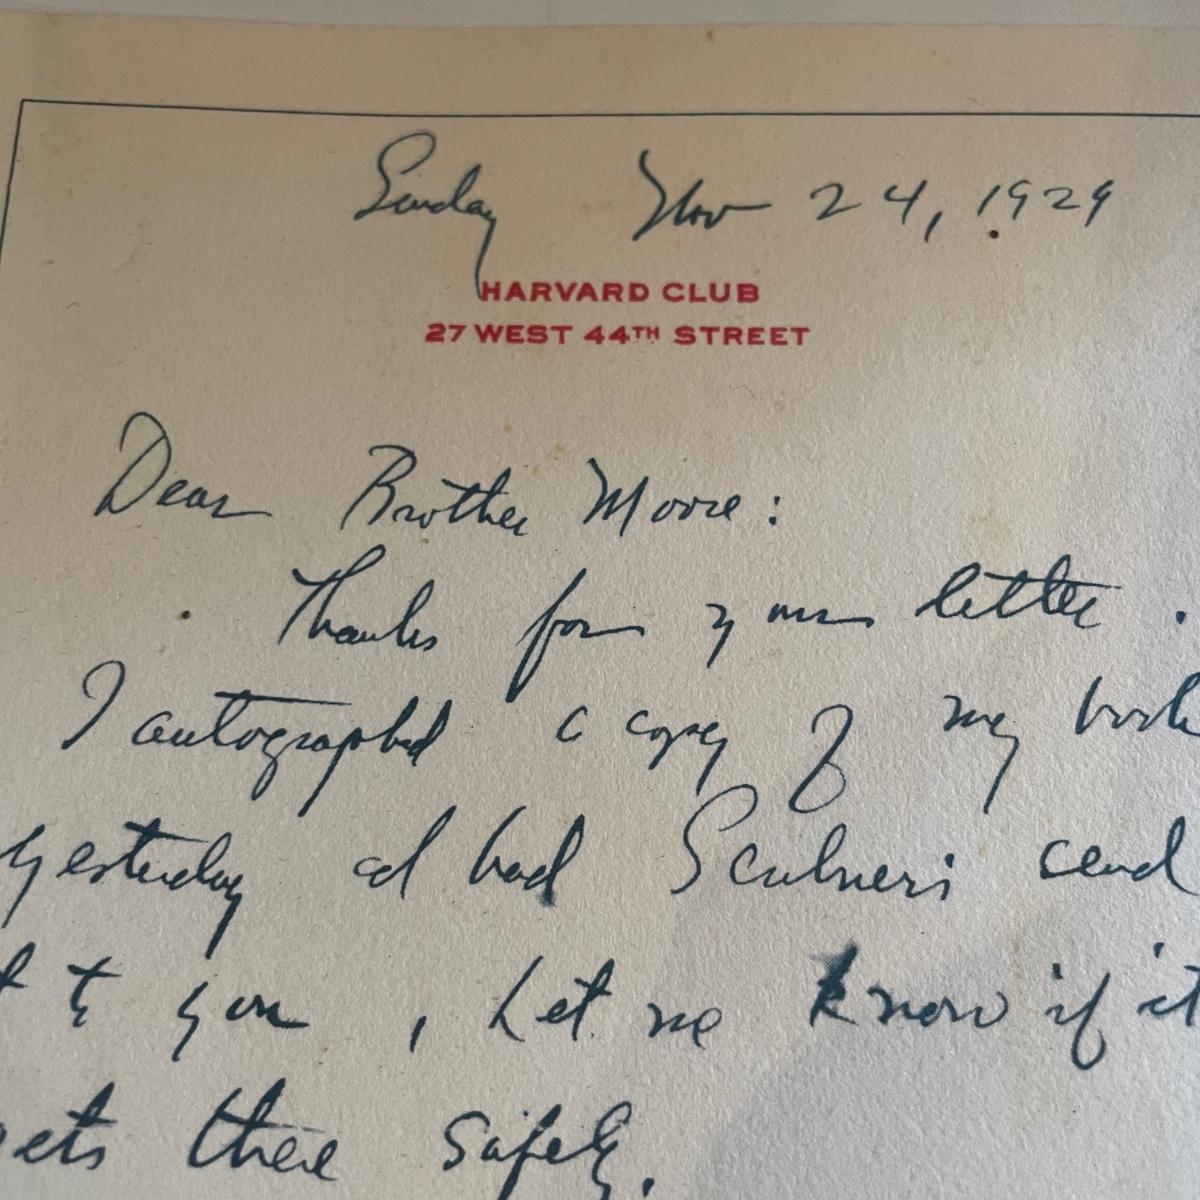 Sunday Nov 24, 1929
HARVARD CLUB
27 WEST 44TH STREET
Dear Brother Moore:
Thanks for your letter.
I autographed a copy of my book
yesterday and had Scribner's send
it to you, Let me know if it
gets there safely.